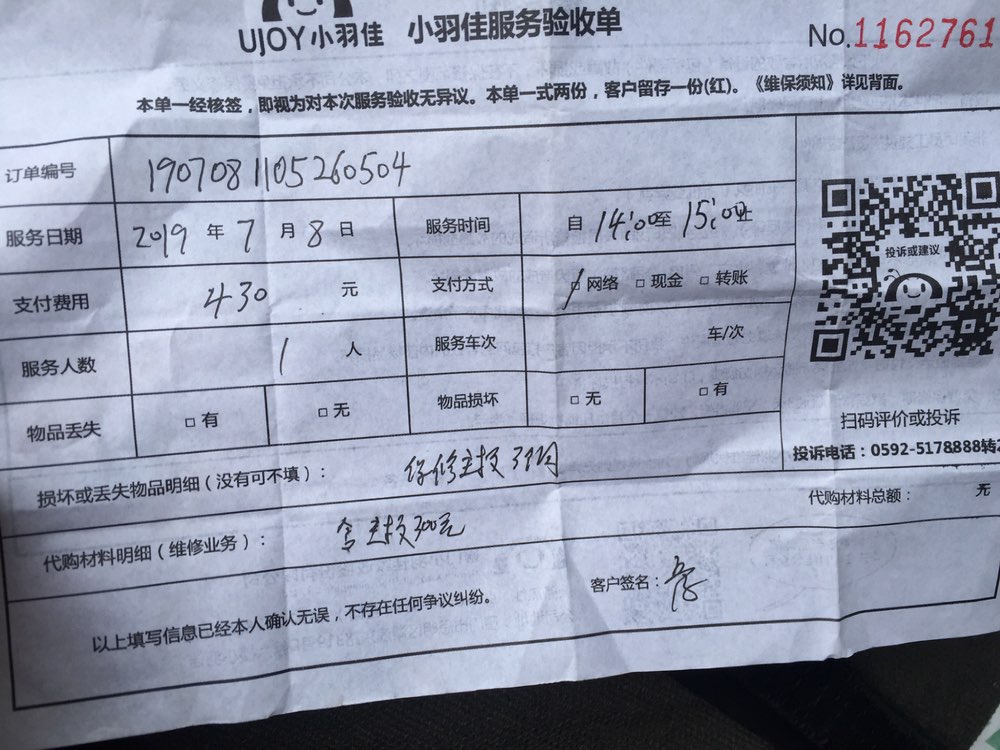 UJOY小羽佳 小羽佳服务验收单 No.1162761
本单一经核签，即视为对本次服务验收无异议。本单一式两份，客户留存一份(红)。《维保须知》详见背面。
订单编号 190708 1105260504
服务日期 2019 年 7 月 8 日 服务时间 自 14:00至 15:00止
投诉或建议
支付费用 430 元 支付方式 □网络 □现金 □转账
服务人数 1 人 服务车次 车/次
物品丢失 □有 □无 物品损坏 □无 □有
扫码评价或投诉
投诉电话：0592-5178888转
损坏或丢失物品明细（没有可不填）： 保修主板3个月
代购材料总额： 元
代购材料明细（维修业务）： 含主板300元
以上填写信息已经本人确认无误，不存在任何争议纠纷。 客户签名：